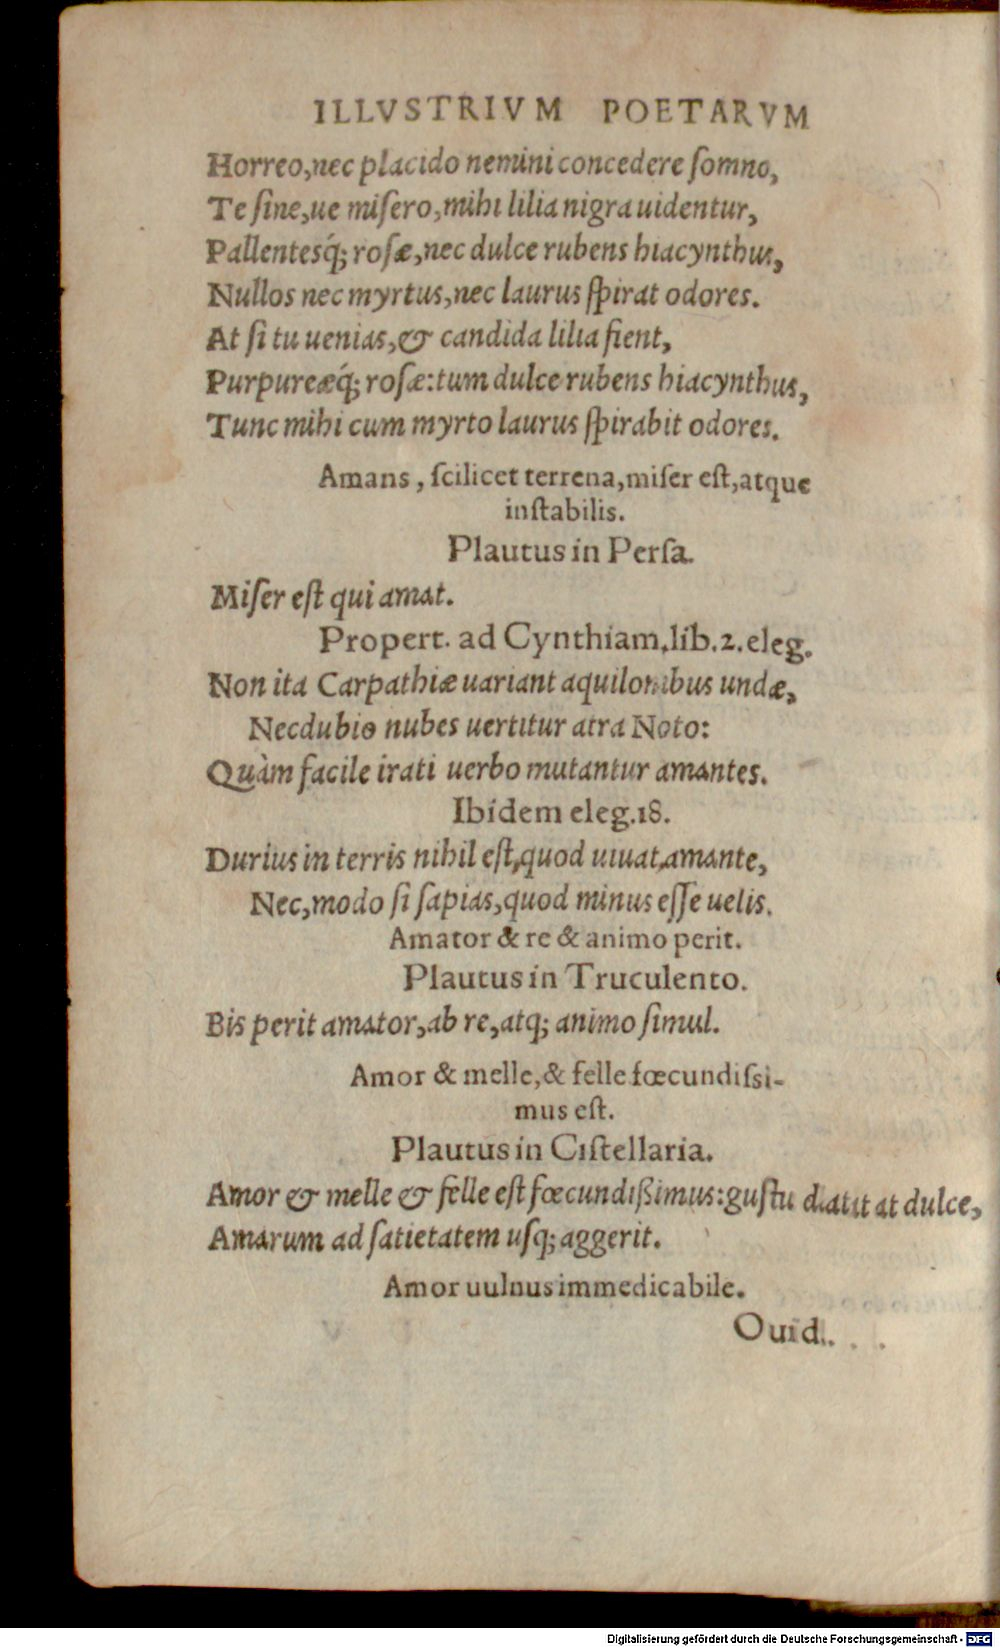 ILLVSTRIVM POETARVM
Horreo,nec placido nemini concedere ſomno,
Te ſine,ue miſero,mihi lilia nigra uidentur,
Pallentesq́; roſæ,nec dulce rubens hiacynthus,
Nullos nec myrtus,nec laurus ſpirat odores.
At ſi tu uenias,& candida lilia fient,
Purpureæq́; roſæ:tum dulce rubens hiacynthus,
Tunc mihi cum myrto laurus ſpirabit odores.
Amans, ſcilicet terrena,miſer eſt,atque
inſtabilis.
Plautus in Perſa.
Miſer eſt qui amat.
Propert. ad Cynthiam,lib.2.eleg.
Non ita Carpathiæ uariant aquilonibus undæ,
Nec dubio nubes uertitur atra Noto:
Quàm facile irati uerbo mutantur amantes.
Ibidem eleg.18.
Durius in terris nihil eſt,quod uiuat,amante,
Nec,modo ſi ſapias,quod minus eſſe uelis.
Amator & re & animo perit.
Plautus in Truculento.
Bis perit amator,ab re,atq; animo ſimul.
Amor & melle,& felle fœcundiſsi-
mus eſt.
Plautus in Ciſtellaria.
Amor & melle & felle eſt fœcundißimus:guſtu dat at dulce,
Amarum ad ſatietatem uſq; aggerit.
Amor uulnus immedicabile.
Ouid.
Digitalisierung gefördert durch die Deutsche Forschungsgemeinschaft - DFG